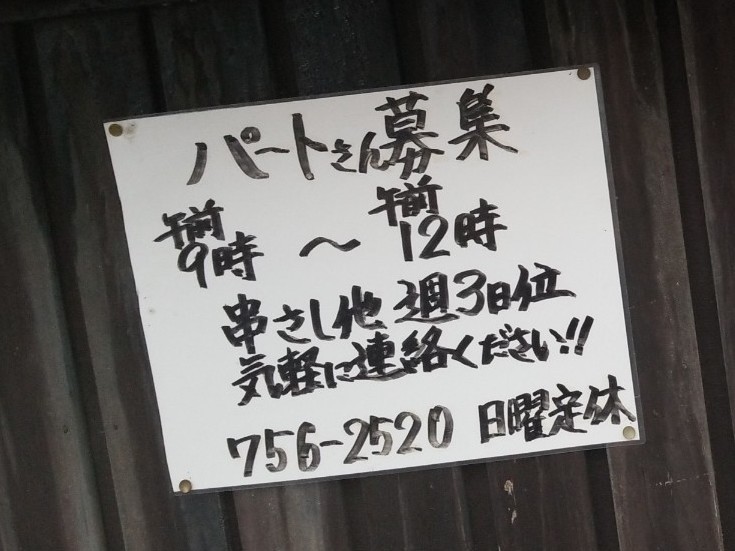 パートさん募集
午前9時 〜 午前12時
串さし他 週3日位
気軽に連絡ください!!
756-2520 日曜定休